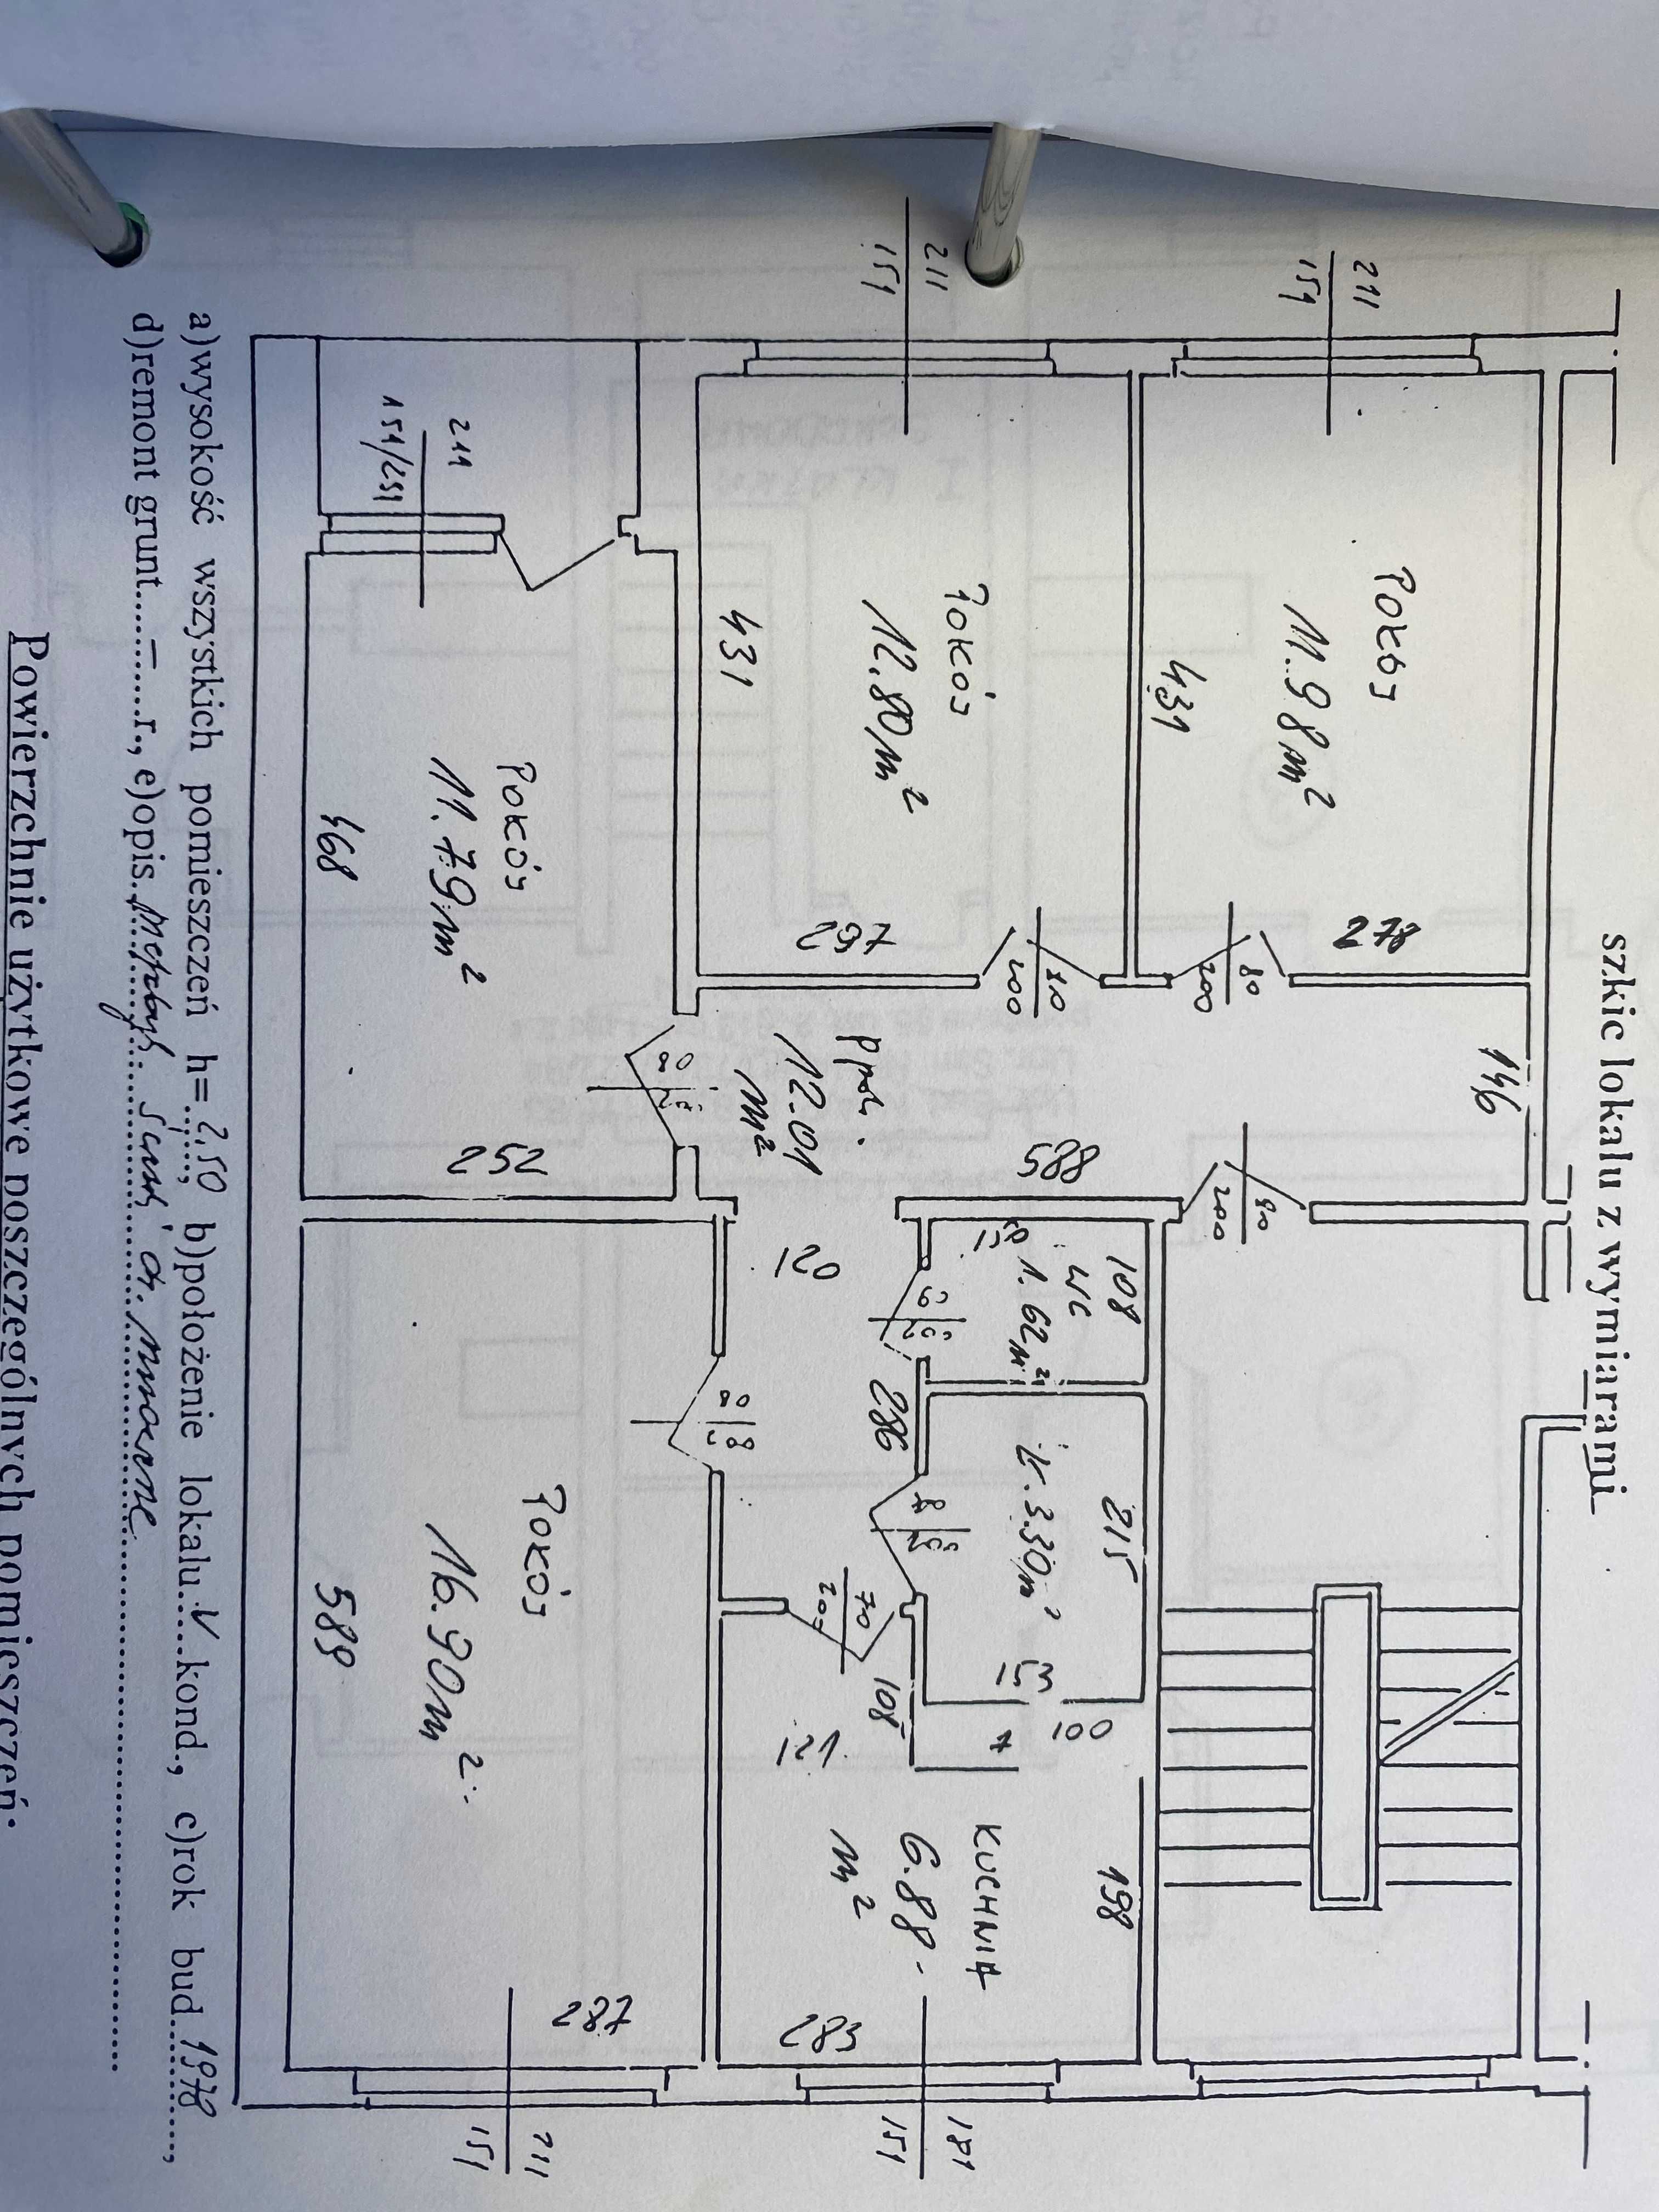 szkic lokalu z wymiarami
211
151
211
151
Pokój
11.98 m²
431
278
80
200
146
Pokój
12.80 m²
431
297
80
200
211
151/231
Pokój
11.79 m²
468
252
80
Ppok.
12.01
m²
588
90
200
120
108
WC
1.62 m²
151
286
80
215
Ł. 3.30 m²
153
70
108
121
7
100
KUCHNIA
6.88
m²
198
283
181
151
Pokój
16.90 m²
589
287
211
151
a)wysokość wszystkich pomieszczeń h=2,50 b)położenie lokalu V kond., c)rok bud. 1978,
d)remont grunt. – r., e)opis.
Powierzchnie użytkowe poszczególnych pomieszczeń: